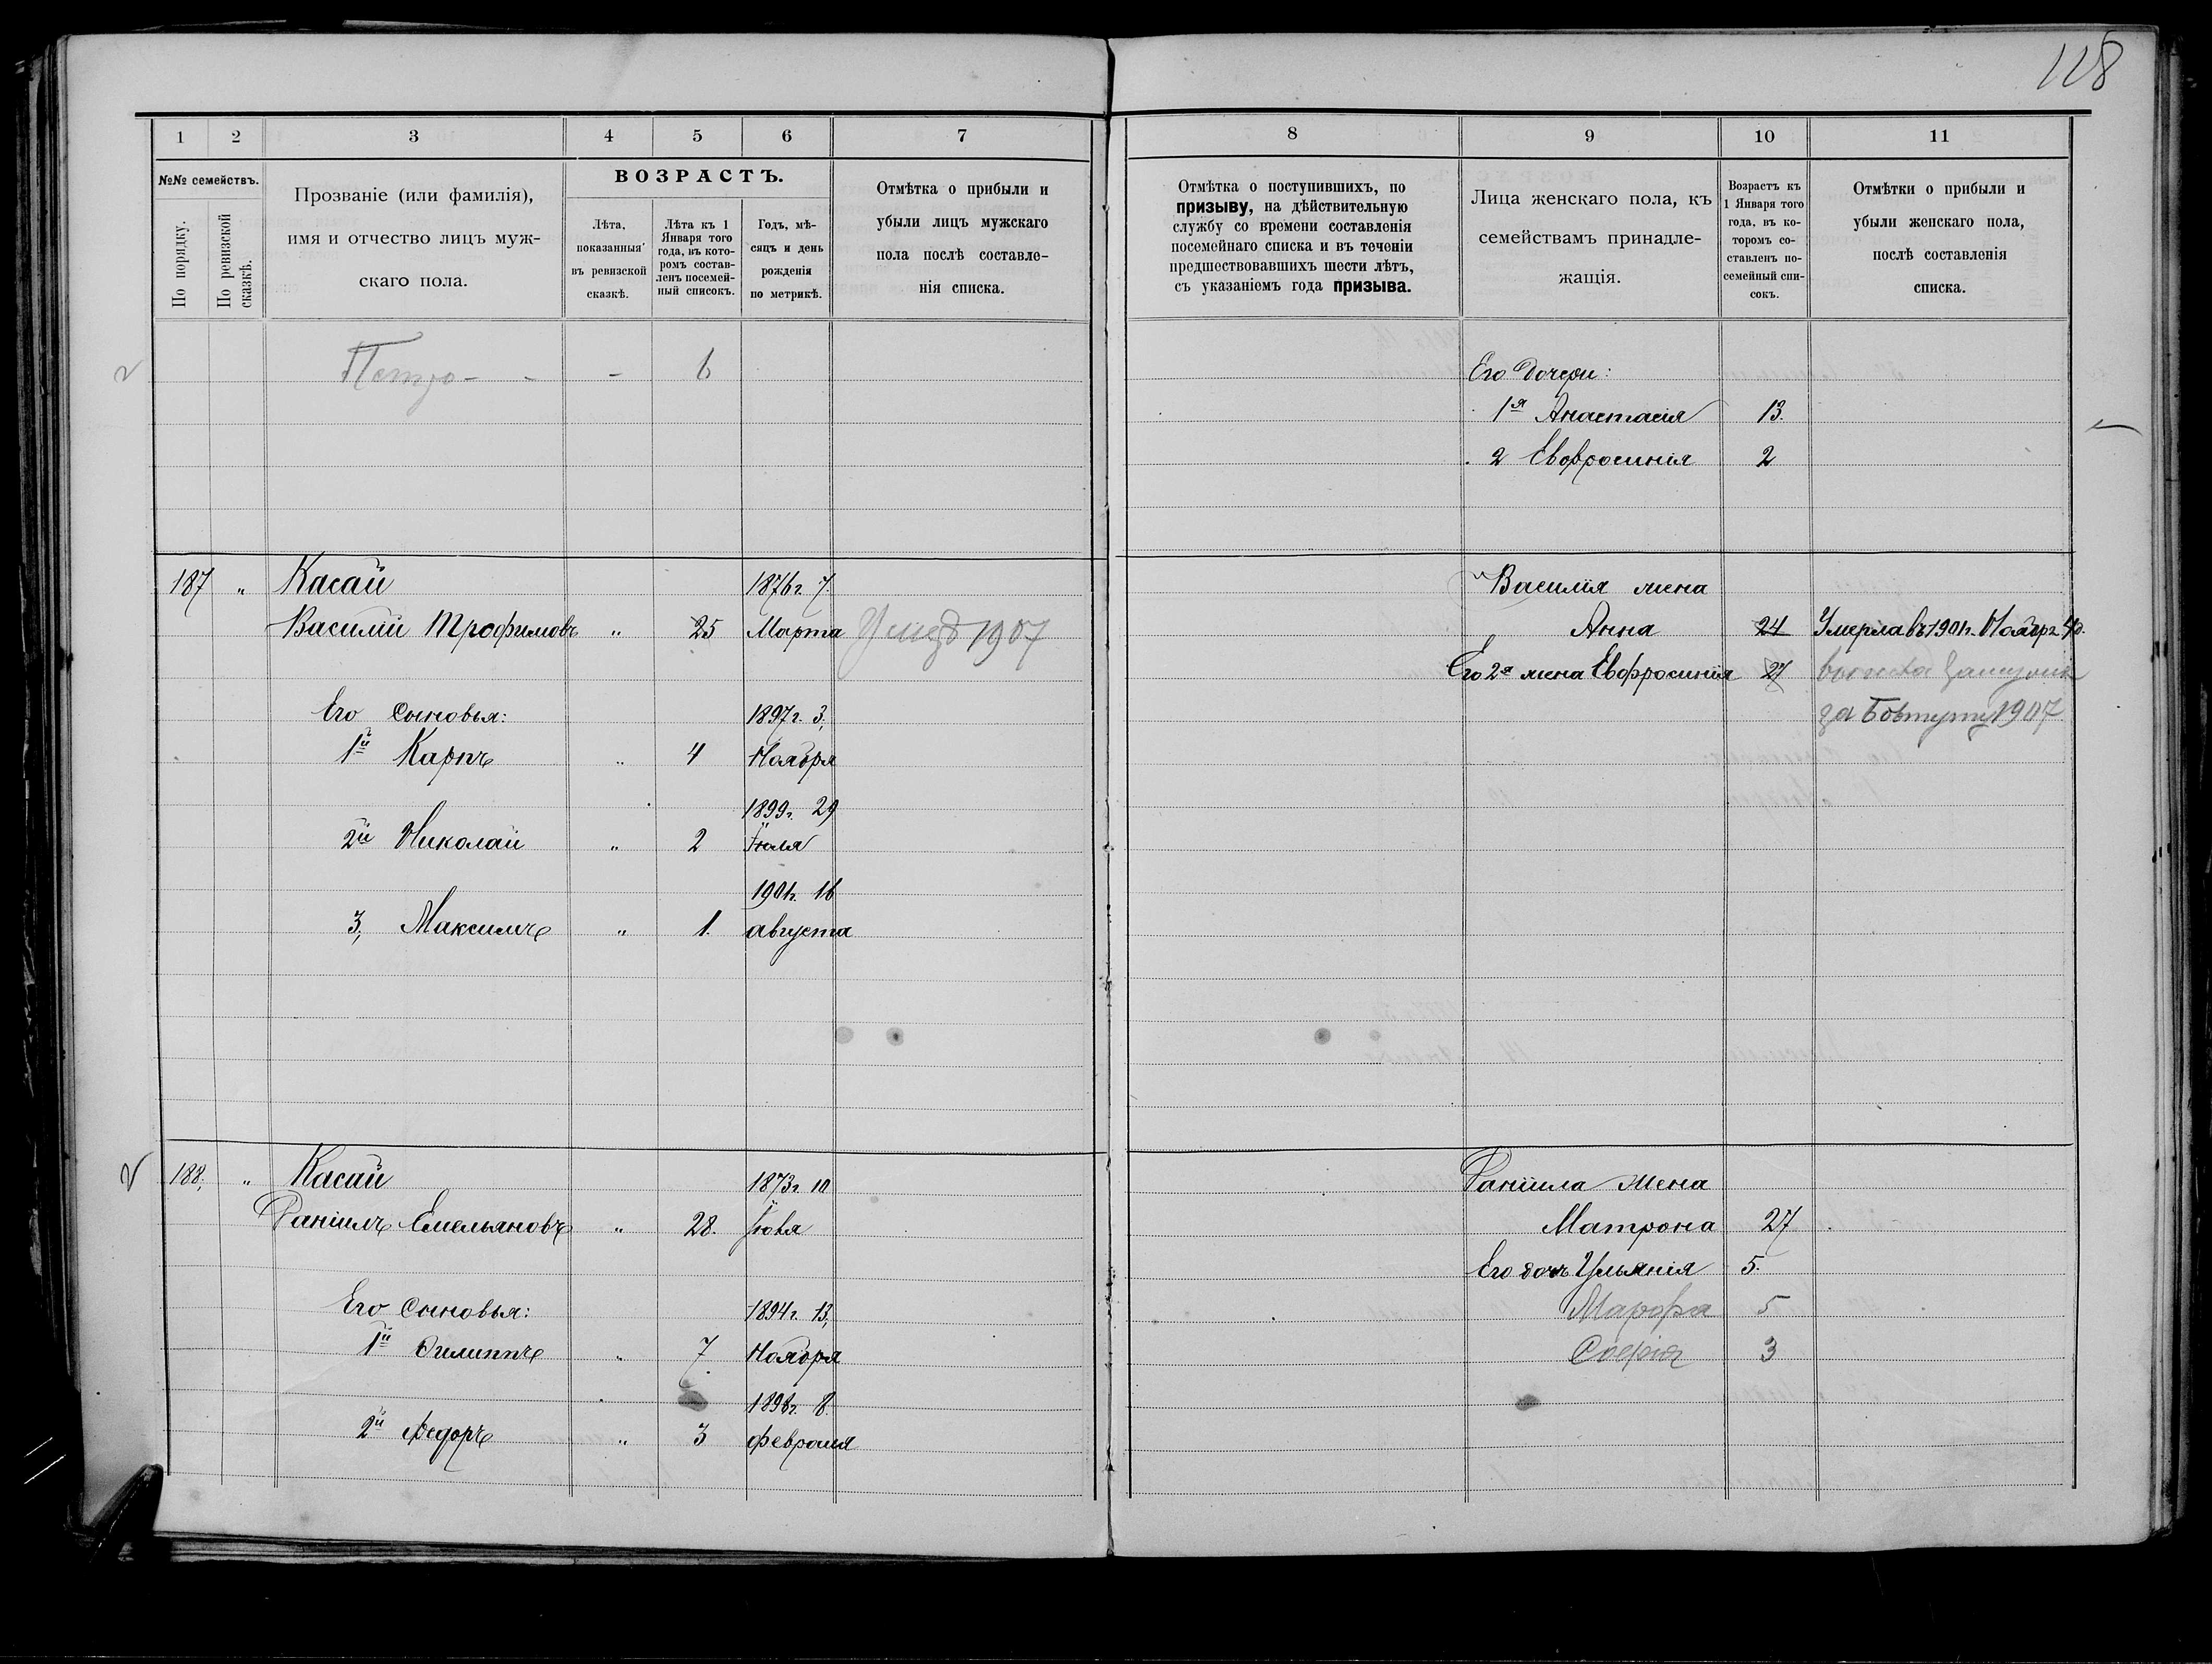 118
1 2 3 4 5 6 7
№№ семействъ.
По порядку.
По ревизской сказкѣ.
Прозваніе (или фамилія),
имя и отчество лицъ муж-
скаго пола.
ВОЗРАСТЪ.
Лѣта,
показанныя
въ ревизской
сказкѣ.
Лѣта къ 1
Января того
года, въ кото-
ромъ состав-
ленъ посемей-
ный списокъ.
Годъ, мѣ-
сяцъ и день
рожденія
по метрикѣ.
Отмѣтка о прибыли и
убыли лицъ мужскаго
пола послѣ составле-
нія списка.
Петро - - - 6
187 " Касай 1876 г. 7.
Василій Трофимовъ " 25 Марта 1907
Его сыновья: 1897 г. 3,
1й Карпъ " 4 Ноября
1899 г. 29
2й Николай " 2 Іюля
1901 г. 16
3, Максимъ " 1. августа
188, " Касай 1873 г. 10
Даніилъ Емельяновъ " 28.
Его сыновья: 1894 г. 13,
1й Филиппъ " 7 Ноября
1898 г. 8.
2й Федоръ " 3 февраля
8 9 10 11
Отмѣтка о поступившихъ, по
призыву, на дѣйствительную
службу со времени составленія
посемейнаго списка и въ теченіи
предшествовавшихъ шести лѣтъ,
съ указаніемъ года призыва.
Лица женскаго пола, къ
семействамъ принадле-
жащія.
Возрастъ къ
1 Января того
года, въ ко-
торомъ со-
ставленъ по-
семейный спи-
сокъ.
Отмѣтки о прибыли и
убыли женскаго пола,
послѣ составленія
списка.
Его дочери:
1я Анастасія 13.
2 Евофросинія 2
Василія жена
Анна 24 Умерла въ 1901 г. Ноябр
Его 2я жена Евфросинія 27
за 1907
Даніила жена
Матрона 27
Его дочь Ульянія 5.
Марфа 5
Софія 3